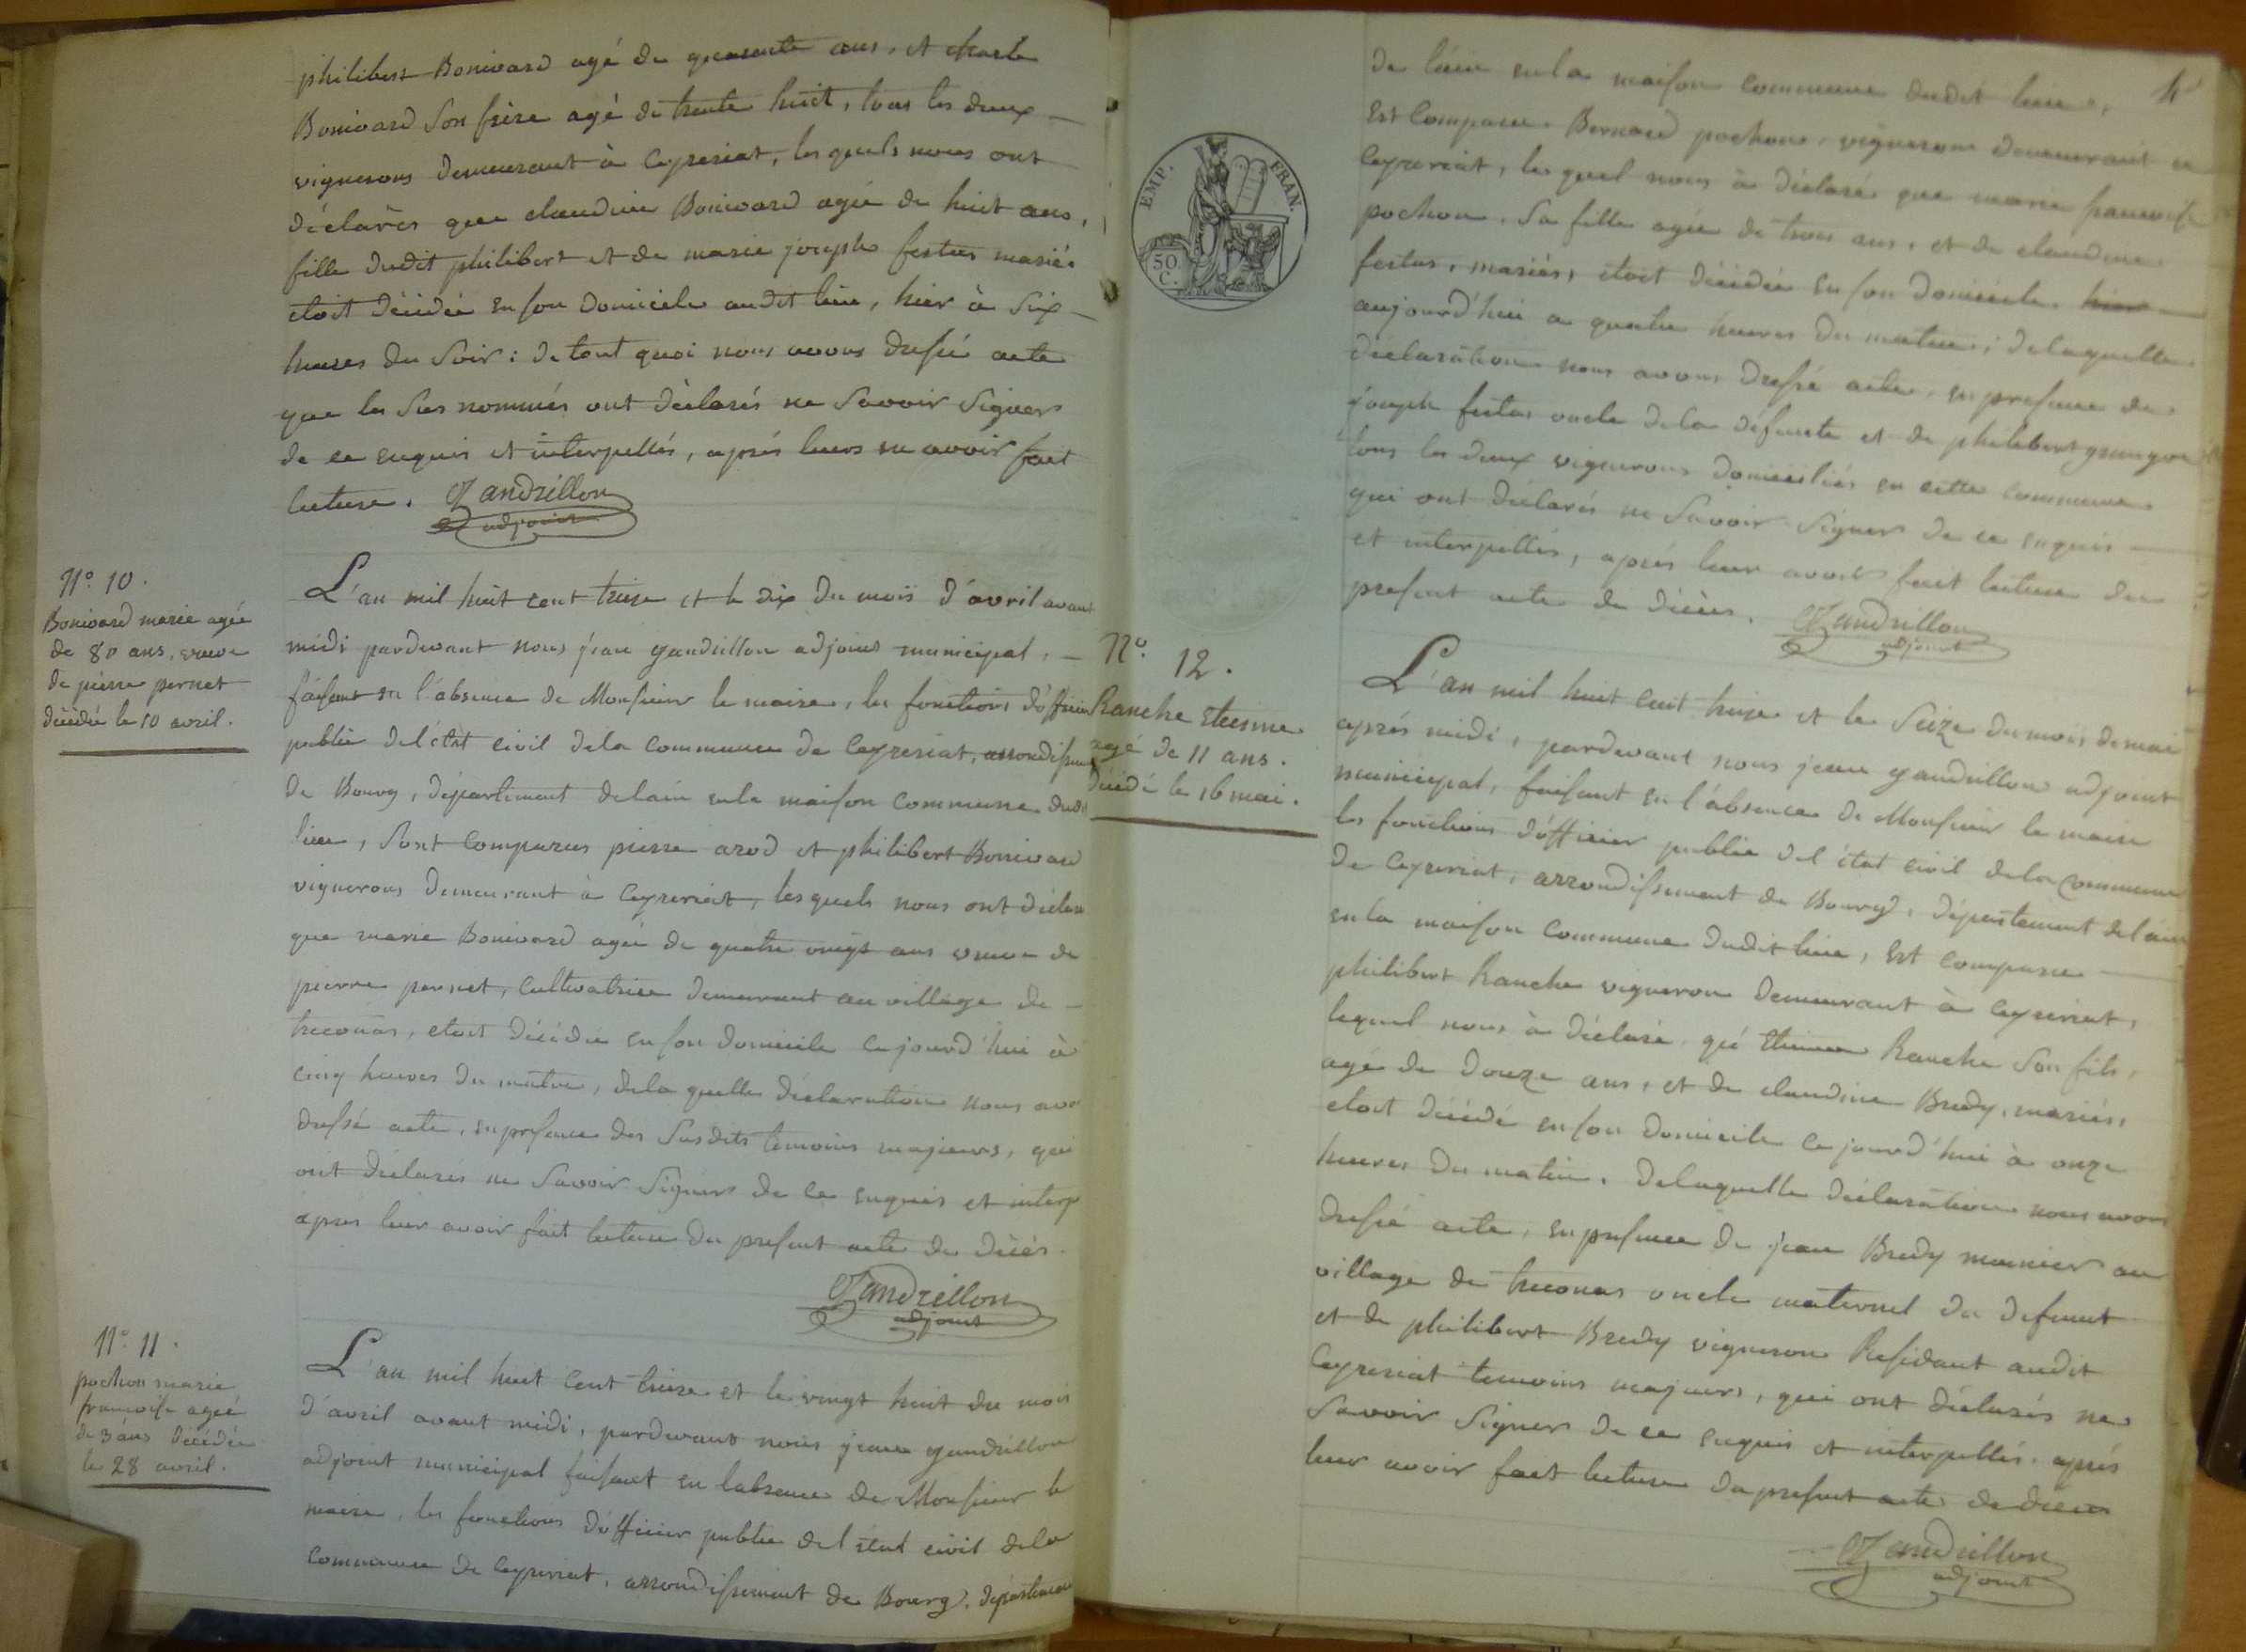 philibert Bonivard agé de quarante ans, et charle
Bonivard Son frère agé de trente huit, tous les deux
vignerons demeurant à Ceyzeriat, les quels nous ont
déclarés que claudine Bonivard agée de huit ans,
fille dudit philibert et de marie joseph festus mariés
etoit décédée en son domicile audit lieu, hier à Six
heures du Soir : de tout quoi nous avons dressé acte
que les Sus nommés ont déclarés ne Savoir Signer
de ce enquis et interpellés, après leurs en avoir fait
lecture. Gandrillon
adjoint
N.º 10.
Bonivard marie agée
de 80 ans, veuve
de pierre pernet
décédée le 10 avril.
L'an mil huit cent treize et le dix du mois d'avril avant
midi pardevant nous jean gandrillon adjoint municipal,
faisant en l'absence de Monsieur le maire, les fonctions d'officier
public de l'état civil de la commune de Ceyzeriat, arrondissement
de Bourg, département de l'ain en la maison commune dudit
lieu, Sont comparus pierre arod et philibert Bonivard
vignerons demeurant à Ceyzeriat, les quels nous ont déclaré
que marie Bonivard agée de quatre vingt ans veuve de
pierre pernet, cultivatrice demeurant au village de
treconas, etoit décédée en son domicile ce jourd'hui à
cinq heures du matin, de la quelle déclaration nous avons
dressé acte, en presence des Susdits temoins majeurs, qui
ont déclarés ne Savoir Signer de ce enquis et interp
après leur avoir fait lecture du present acte de décés.
Gandrillon
adjoint
N.º 11.
pochon marie
francoise agée
de 3 ans décédée
le 28 avril.
L'an mil huit cent treize et le vingt huit du mois
d'avril avant midi, pardevant nous jean gandrillon
adjoint municipal faisant en l'absence de Monsieur le
maire, les fonctions d'officier public de l'état civil de la
commune de Ceyzeriat, arrondissement de Bourg, département
4
de l'ain en la maison commune dudit lieu,
Est comparu Bernard pochon, vigneron demeurant a
Ceyzeriat, le quel nous à déclaré que marie francoise
pochon, Sa fille agée de trois ans, et de claudine
festus, mariés, etoit décédée en son domicile hier
aujourd'hui a quatre heures du matin; de laquelle
déclaration nous avons dressé acte, en presence de
joseph festus oncle de la défunte et de philibert
tous les deux vignerons domiciliés en cette commune
qui ont déclarés ne Savoir Signer de ce enquis
et interpellés, après leur avoir fait lecture du
present acte de décès. Gandrillon
adjoint
EMP. FRAN.
50.
C.
N.º 12.
Ranche Etienne
agé de 11 ans.
décédé le 16 mai.
L'an mil huit cent treize et le Seize du mois de mai
après midi, pardevant nous jean gandrillon adjoint
municipal, faisant en l'absence de Monsieur le maire
les fonctions d'officier public de l'état civil de la commune
de Ceyzeriat, arrondissement de Bourg, département de l'ain
en la maison commune dudit lieu, Est comparu
philibert Ranche vigneron demeurant à Ceyzeriat,
lequel nous à déclaré, qué Etienne Ranche Son fils,
agé de douze ans, et de claudine Bredy, mariés,
etoit décédé en son domicile ce jourd'hui à onze
heures du matin. de laquelle déclaration nous avons
dressé acte, en presence de jean Bredy meunier au
village de treconas oncle maternel du defunt
et de philibert Bredy vigneron Residant audit
Ceyzeriat temoins majeurs, qui ont déclarés ne
Savoir Signer de ce enquis et interpellés. après
leur avoir fait lecture du present acte de décés
Gandrillon
adjoint